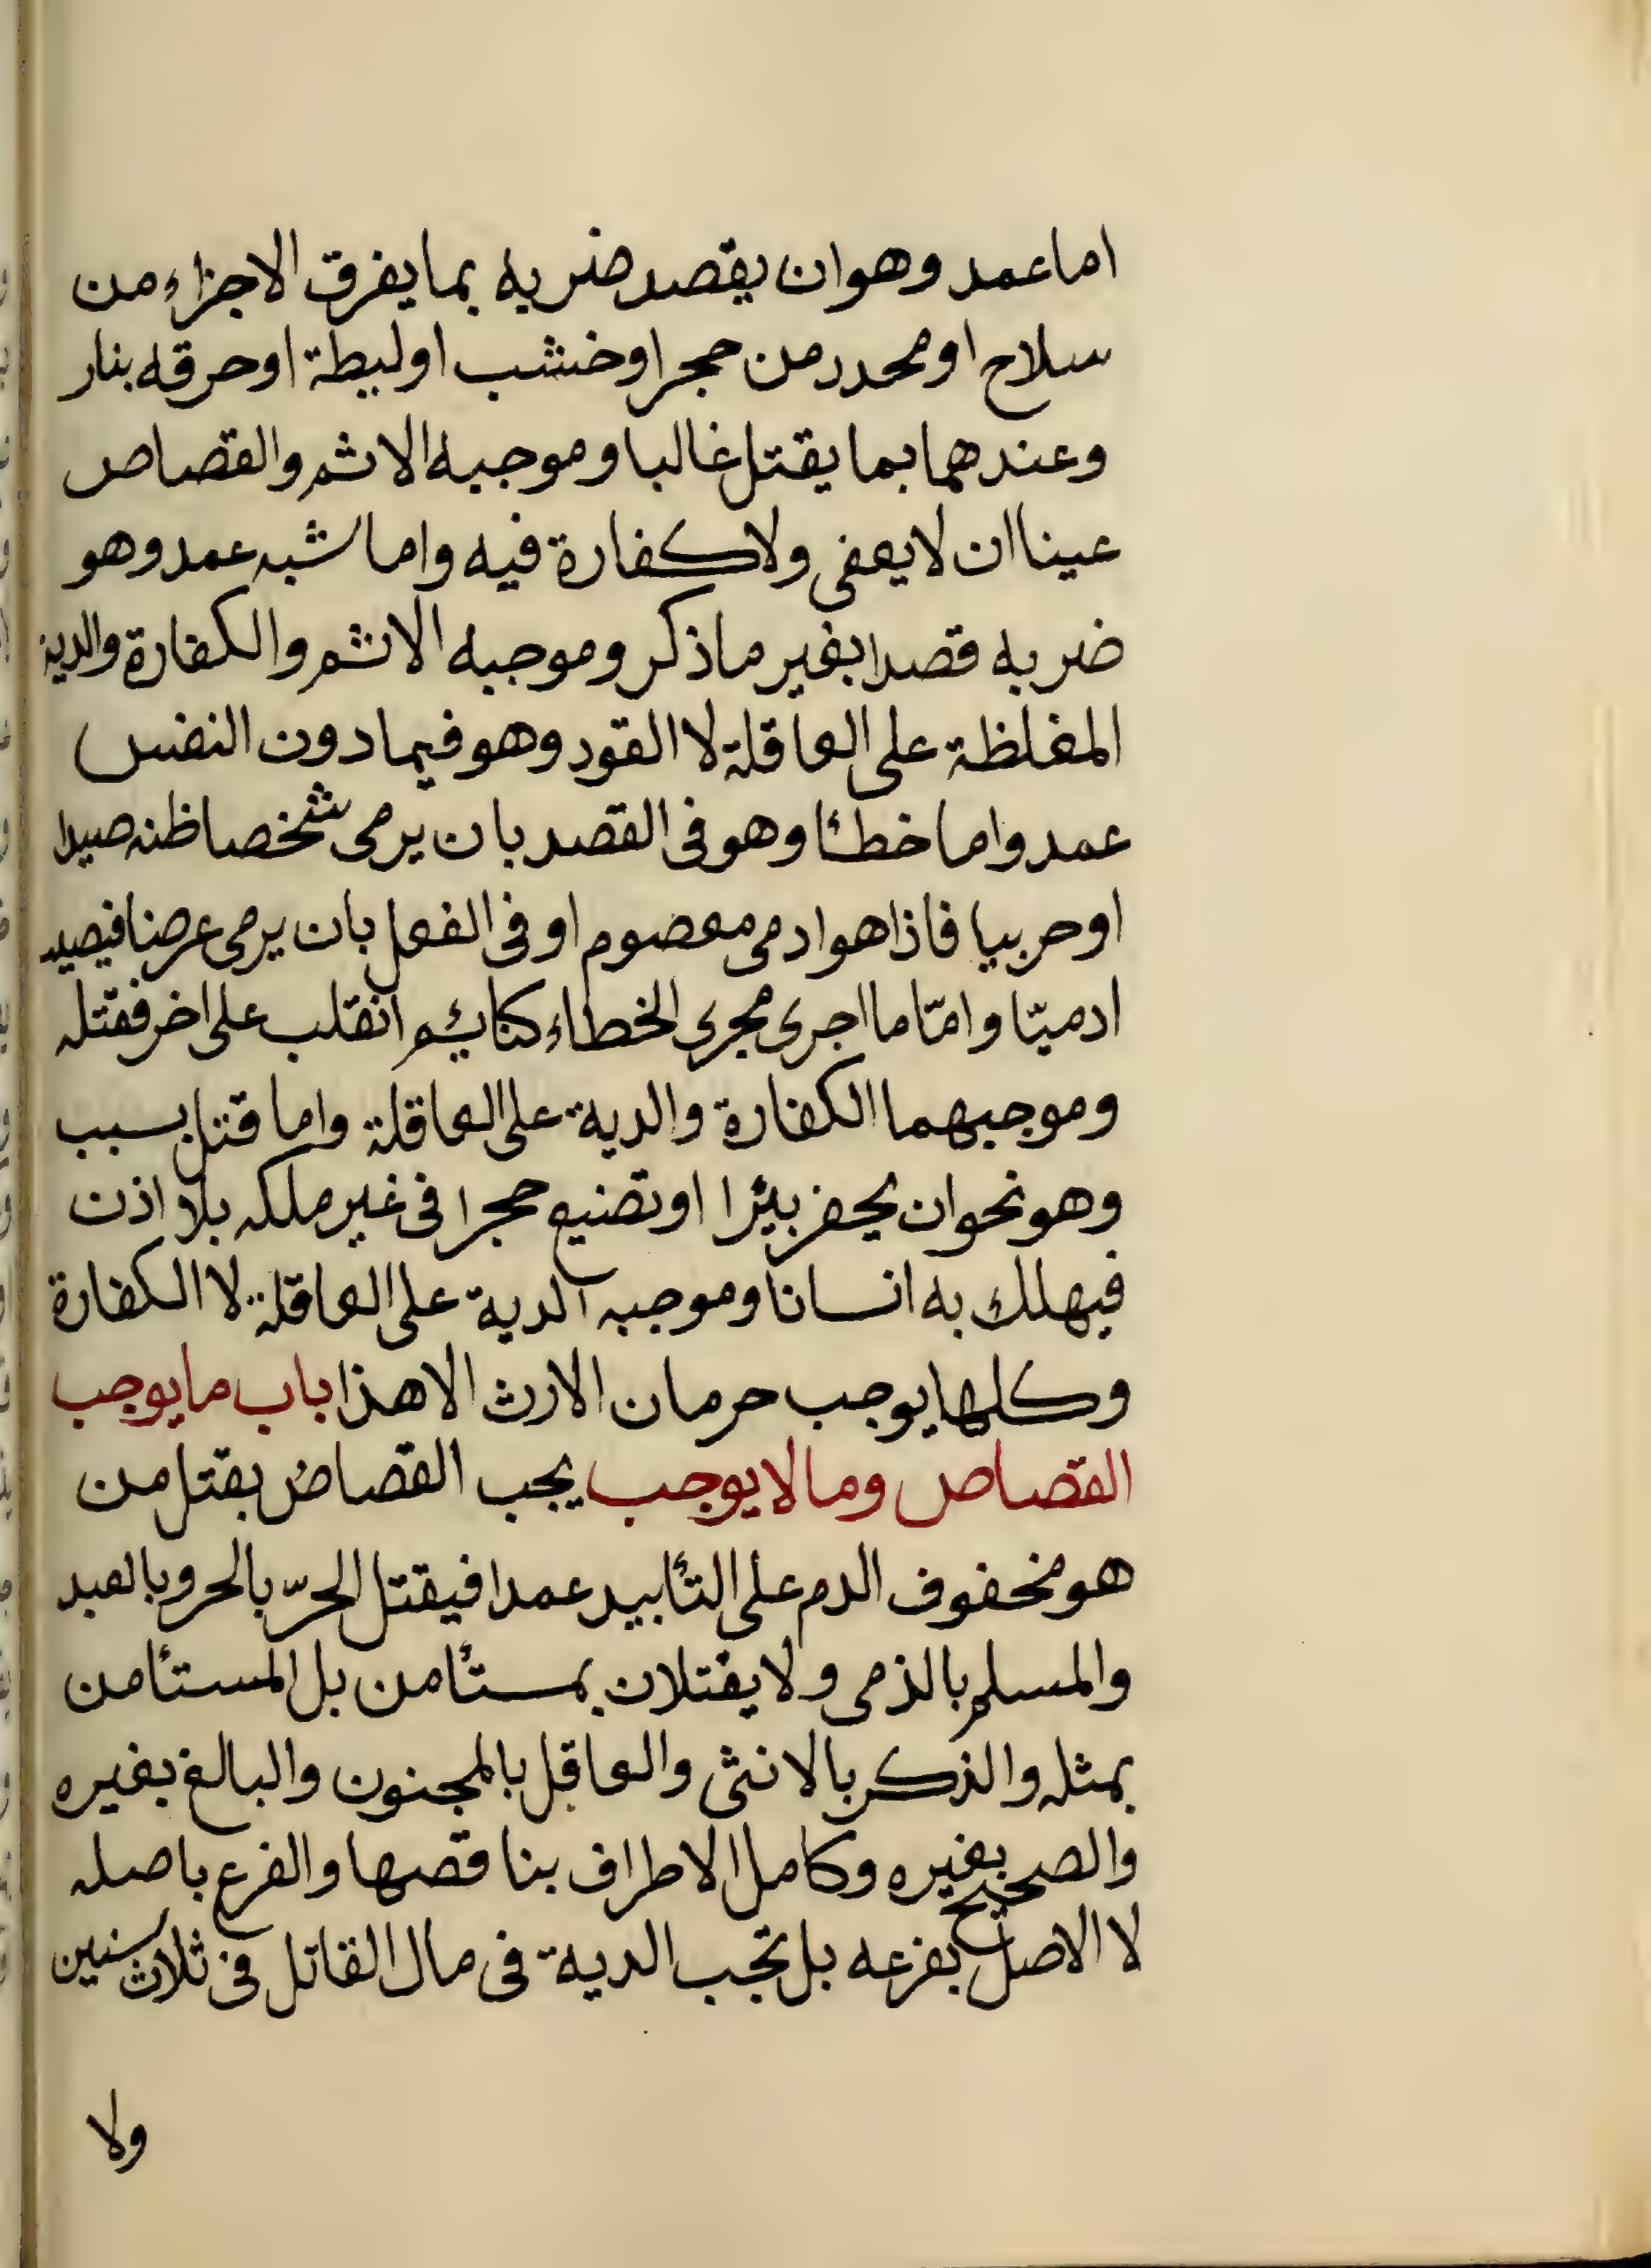 اما عمد وهو ان يقصد ضربه بما يفرق الاجزاء من
سلاح او محدد من حجر او خشب او ليطة او حرقه بنار
وعندهما بما يقتل غالبا وموجبه الاثم والقصاص
عينا ان لا يعفى ولا كفارة فيه واما شبه عمد وهو
ضربه قصدا بغير ما ذكر وموجبه الاثم والكفارة والدية
المغلظة على العاقلة لا القود وهو فيما دون النفس
عمد واما خطئا وهو فى القصد بان يرمى شخصا ظنه صيدا
او حربيا فاذا هو ادمى معصوم او فى الفعل بان يرمى عرضا فيصيد
ادميّا وامّا ما اجرى مجرى الخطاء كنائم انقلب على اخر فقتله
وموجبهما الكفارة والدية على العاقلة واما قتل بسبب
وهو نحو ان يحفر بئرا او تضيع حجرا فى غير ملكه بلا اذن
فيهلك به انسانا وموجبه الدية على العاقلة لا الكفارة
وكلها يوجب حرمان الارث الا هذا باب ما يوجب
القصاص وما لا يوجب يجب القصاص بقتل من
هو مخفوف الدم على التأبيد عمدا فيقتل الحرّ بالحر وبالعبد
والمسلم بالذمى ولا يقتلان بمستأمن بل المستأمن
بمثله والذكر بالانثى والعاقل بالمجنون والبالغ بغيره
والصحيح بغيره وكامل الاطراف بناقصها والفرع باصله
لا الاصل بفرعه بل تجب الدية فى مال القاتل فى ثلاث سنين
ولا